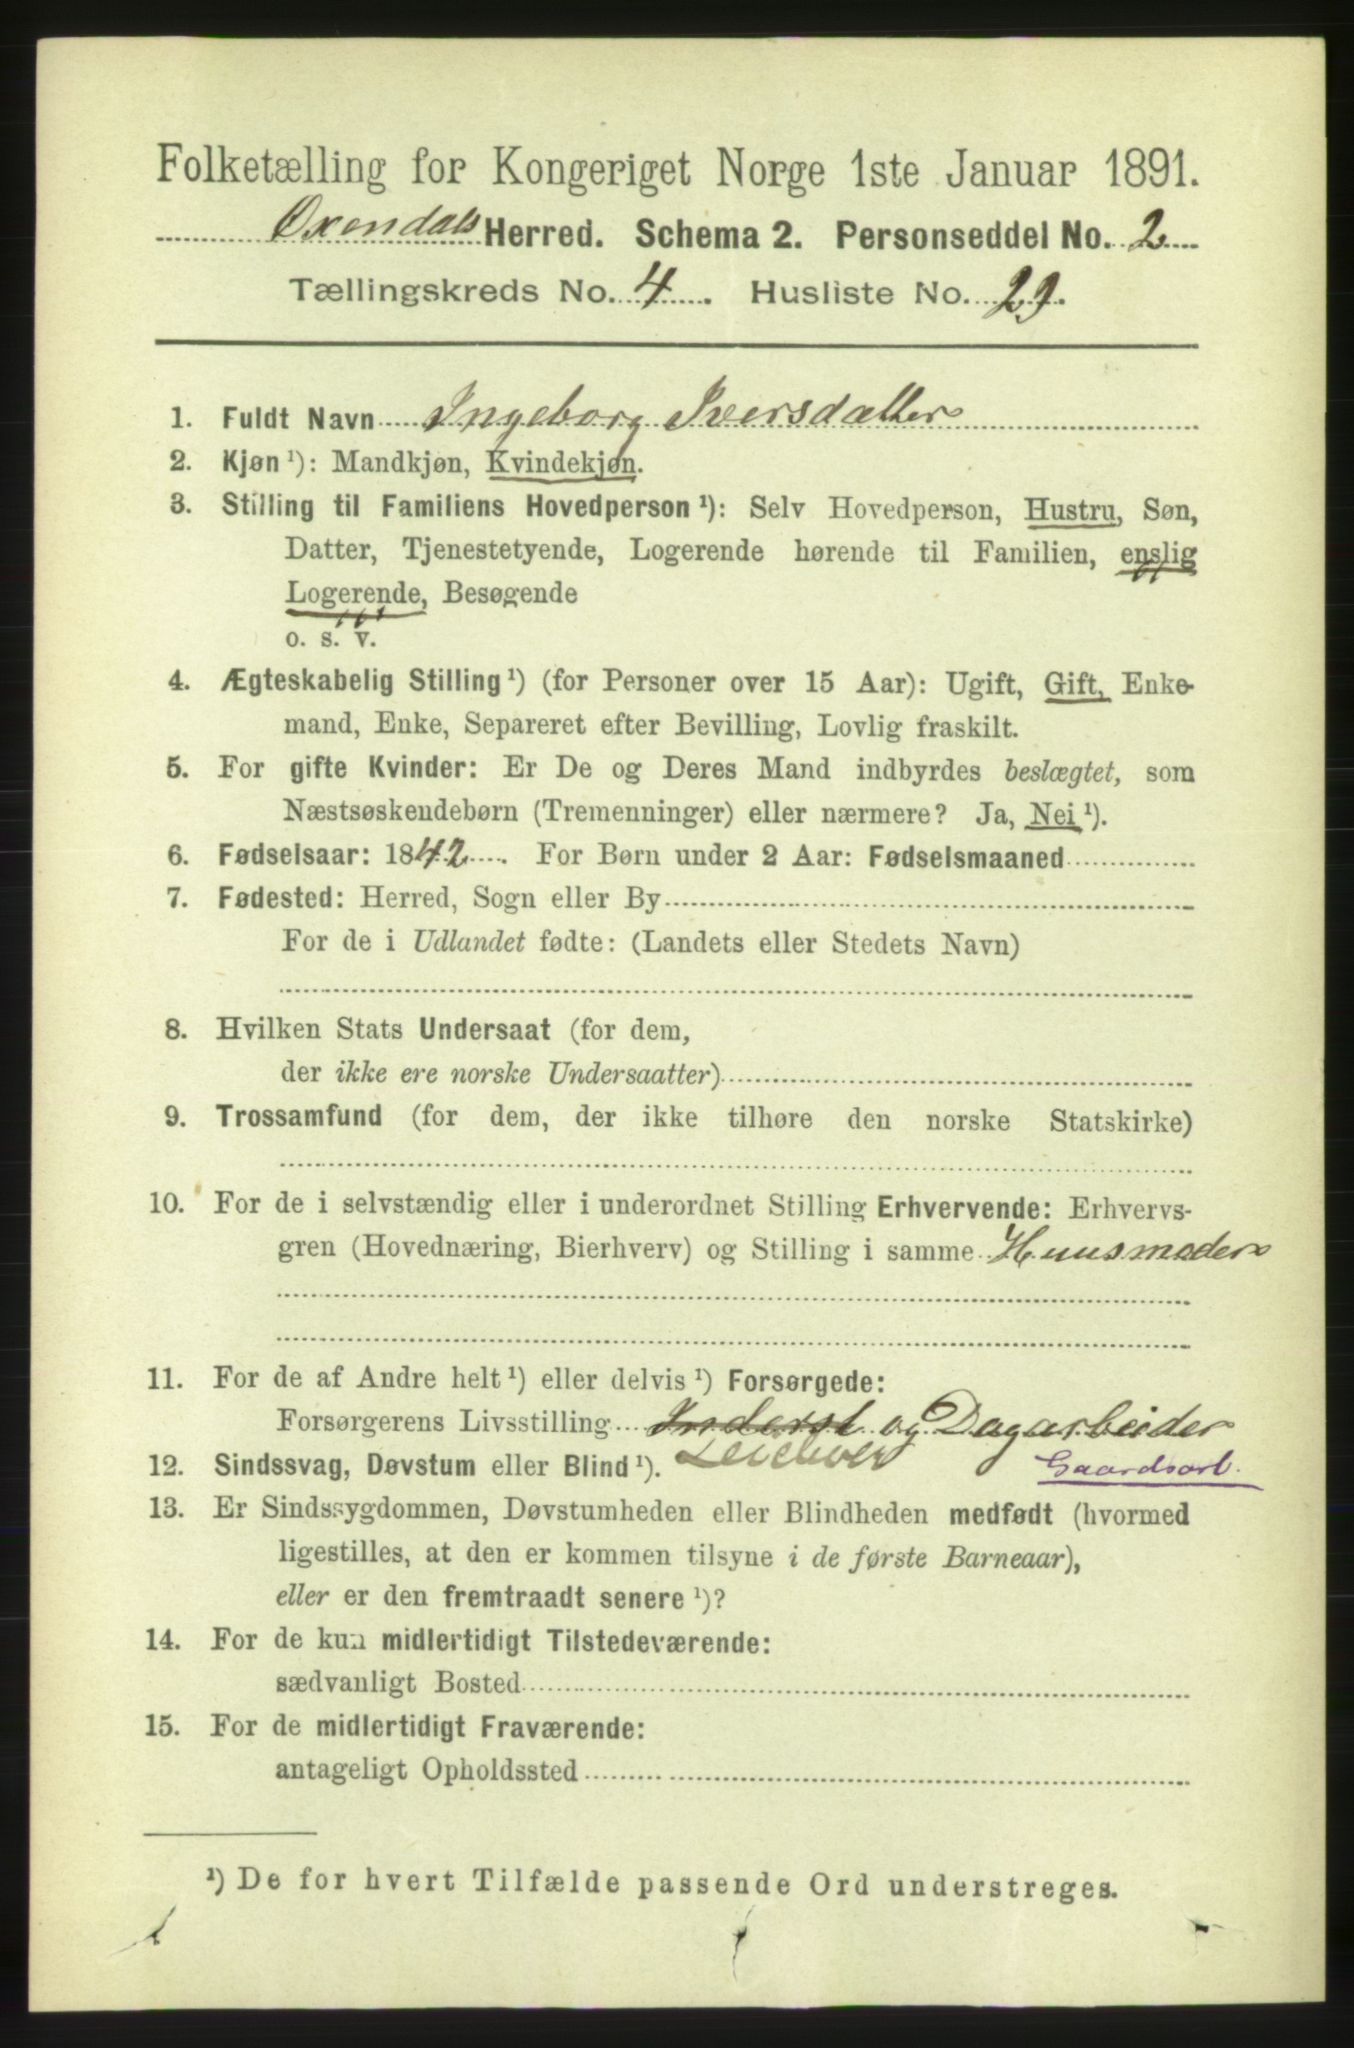 Folketælling for Kongeriget Norge 1ste Januar 1891.
Øxendals Herred. Schema 2. Personseddel No. 2
Tællingskreds No. 4. Husliste No. 29.
1. Fuldt Navn Ingeborg Iversdatter
2. Kjøn ¹): Mandkjøn, Kvindekjøn.
3. Stilling til Familiens Hovedperson ¹): Selv Hovedperson, Hustru, Søn,
Datter, Tjenestetyende, Logerende hørende til Familien, enslig
Logerende, Besøgende
o. s. v.
4. Ægteskabelig Stilling ¹) (for Personer over 15 Aar): Ugift, Gift, Enke-
mand, Enke, Separeret efter Bevilling, Lovlig fraskilt.
5. For gifte Kvinder: Er De og Deres Mand indbyrdes beslægtet, som
Næstsøskendebørn (Tremenninger) eller nærmere? Ja, Nei ¹).
6. Fødselsaar: 1842. For Børn under 2 Aar: Fødselsmaaned
7. Fødested: Herred, Sogn eller By
For de i Udlandet fødte: (Landets eller Stedets Navn)
8. Hvilken Stats Undersaat (for dem,
der ikke ere norske Undersaatter)
9. Trossamfund (for dem, der ikke tilhøre den norske Statskirke)
10. For de i selvstændig eller i underordnet Stilling Erhvervende: Erhvervs-
gren (Hovednæring, Bierhverv) og Stilling i samme Huusmoder
11. For de af Andre helt ¹) eller delvis ¹) Forsørgede:
Forsørgerens Livsstilling Inderst og Dagarbeider
12. Sindssvag, Døvstum eller Blind ¹). Gaardsarb.
13. Er Sindssygdommen, Døvstumheden eller Blindheden medfødt (hvormed
ligestilles, at den er kommen tilsyne i de første Barneaar),
eller er den fremtraadt senere ¹)?
14. For de kun midlertidigt Tilstedeværende:
sædvanligt Bosted
15. For de midlertidigt Fraværende:
antageligt Opholdssted
¹) De for hvert Tilfælde passende Ord understreges.